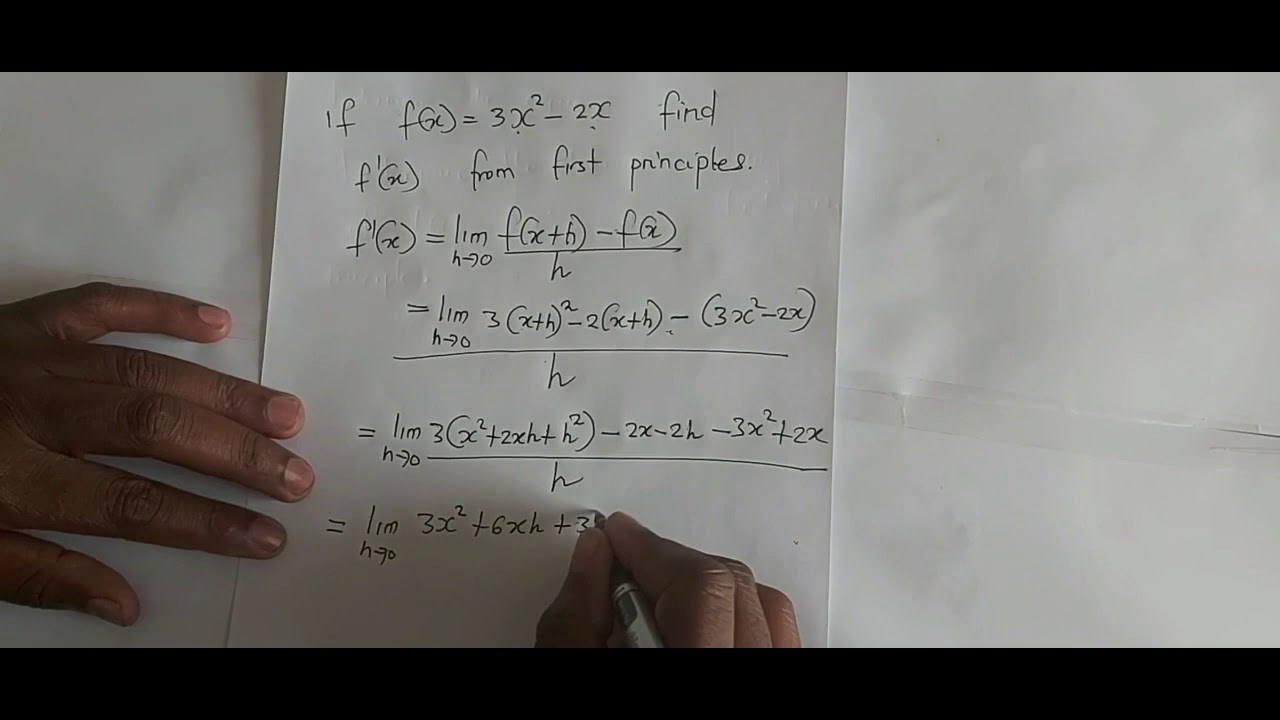 If f(x) = 3x² - 2x find
f'(x) from first principles.
f'(x) = lim f(x+h) - f(x)
h→0 h
= lim 3(x+h)² - 2(x+h) - (3x² - 2x)
h→0
h
= lim 3(x² + 2xh + h²) - 2x - 2h - 3x² + 2x
h→0 h
= lim 3x² + 6xh + 3
h→0